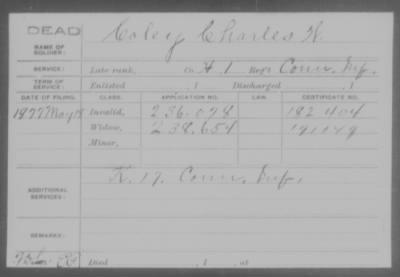 DEAD
NAME OF SOLDIER: Coley Charles H.
SERVICE: Late rank, Co. H, 1 Reg't Conn. Inf.
TERM OF SERVICE: Enlisted , 1 Discharged , 1
DATE OF FILING. CLASS. APPLICATION NO. LAW. CERTIFICATE NO.
1877 May Invalid, 236.078 182.404
Widow, 238.654 191149
Minor,
ADDITIONAL SERVICES: K. 17. Conn. Inf.
REMARKS:
Died , 1 , at